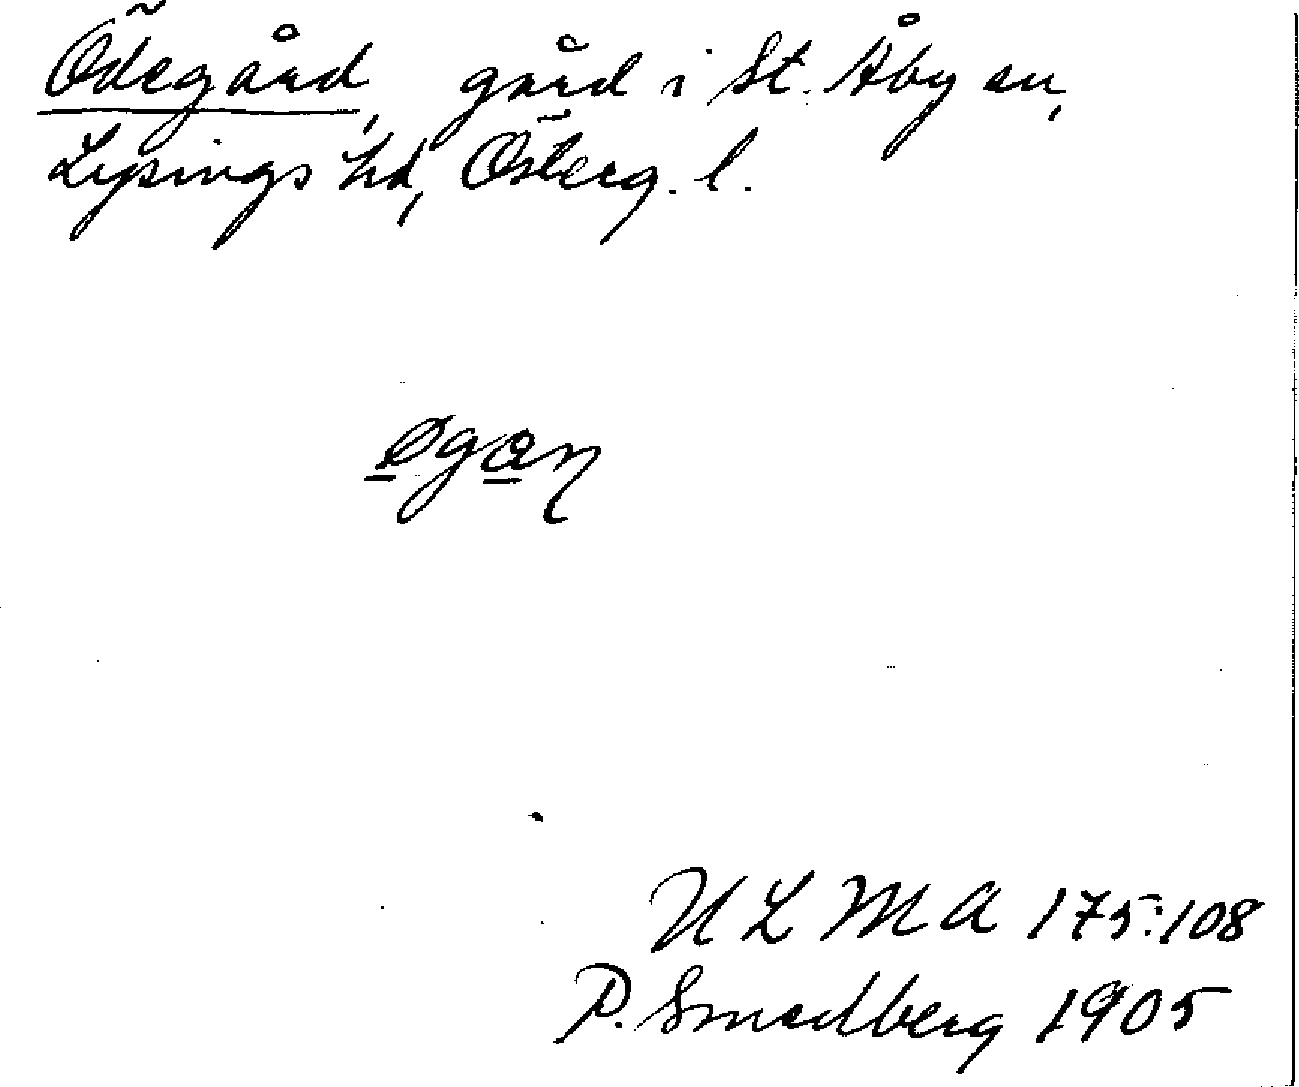 Ödegård, gård i St. Åby sn,
Lysings hd, Österg. l.
øgan
ULMA 175:108
P. Smedberg 1905